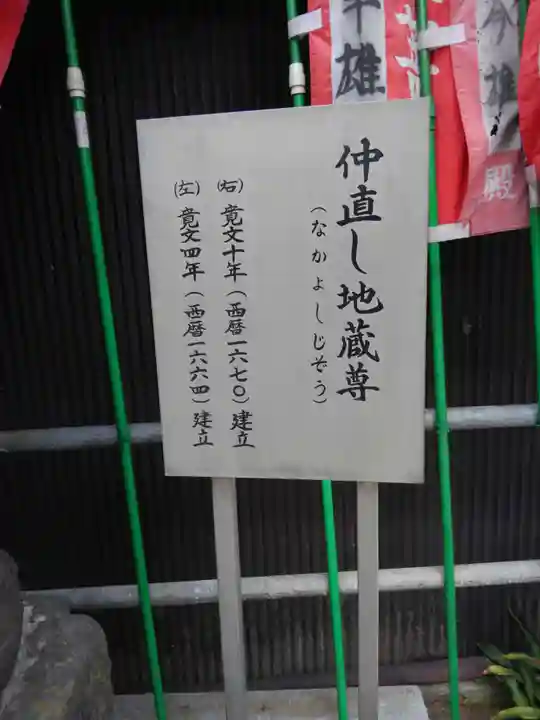 仲直し地蔵尊
(なかよしじぞう)
(右) 寛文十年(西暦一六七〇)建立
(左) 寛文四年(西暦一六六四)建立
雄
雄
殿